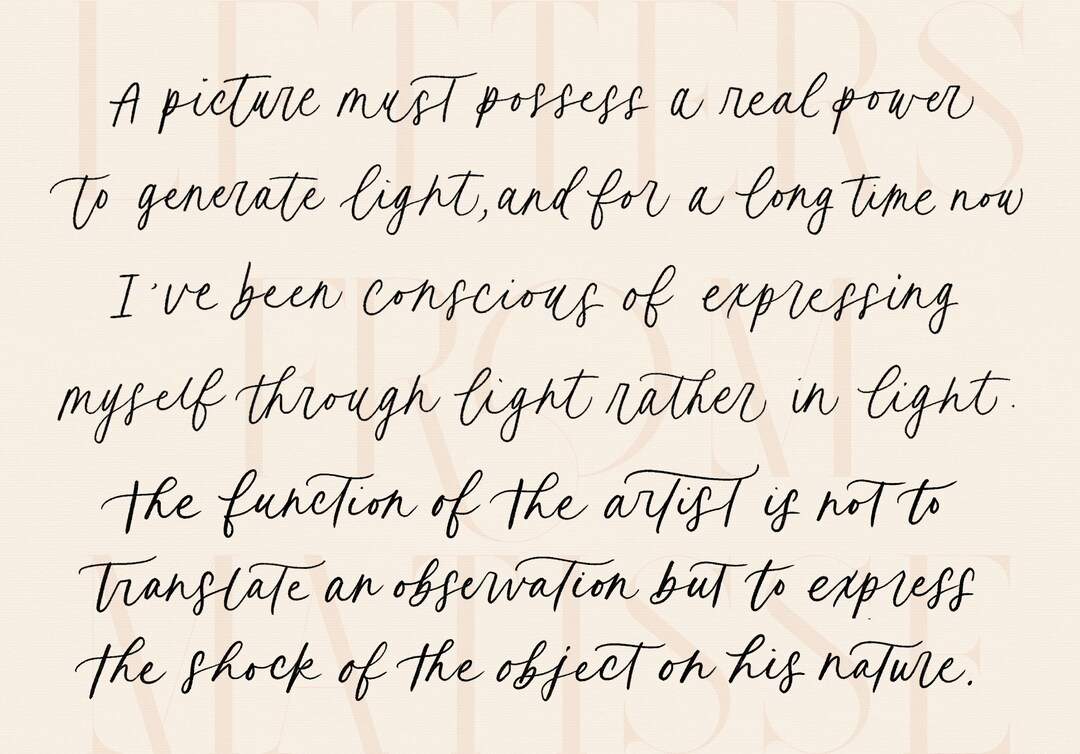 LETTERS
A picture must possess a real power
to generate light, and for a long time now
I've been conscious of expressing
FROM
myself through light rather in light.
the function of the artist is not to
translate an observation but to express
MATISSE
the shock of the object on his nature.